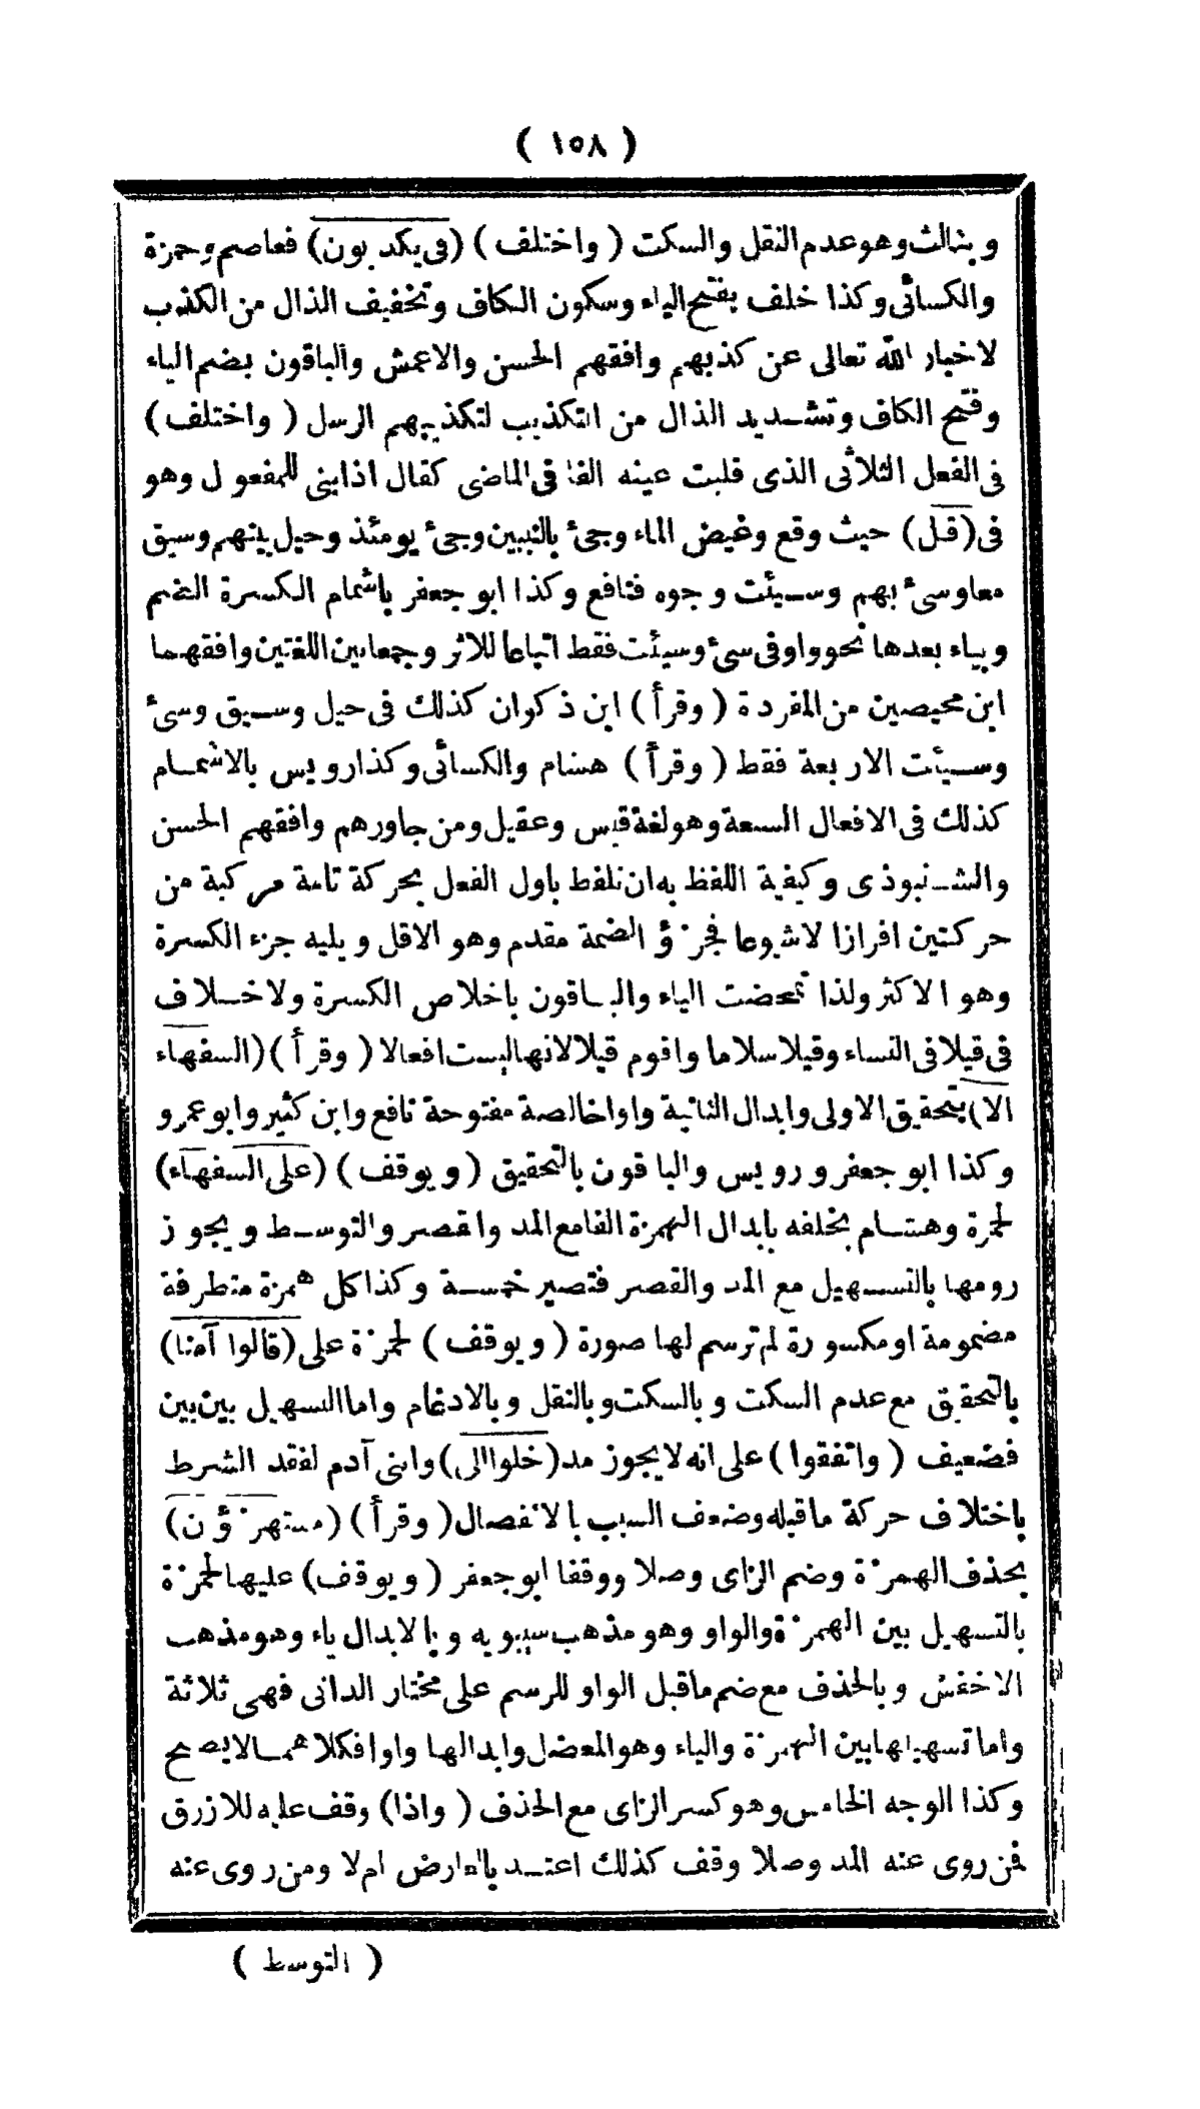 ( ١٥٨ )
وبثالث وهو عدم النقل والسكت ( واختلف ) (فى يكذبون) فعاصم وحمزة
والكسائى وكذا خلف بفتح الياء وسكون الكاف وتخفيف الذال من الكذب
لاخبار الله تعالى عن كذبهم وافقهم الحسن والاعمش والباقون بضم الياء
وفتح الكاف وتشديد الذال من التكذيب لتكذيبهم الرسل ( واختلف )
فى الفعل الثلاثى الذى قلبت عينه الفا فى الماضى كقال اذا بنى للمفعول وهو
فى (قيل) حيث وقع وغيض الماء وجئ بالنبيين وجئ يومئذ وحيل بينهم وسيق
معا وسئ بهم وسيئت وجوه فنافع وكذا ابو جعفر باشمام الكسرة الضم
وبياء بعدها نحو واو فى سئ وسيئت فقط اتباعا للاثر وجمعا بين اللغتين وافقهما
ابن محيصين من المفردة ( وقرأ ) ابن ذكوان كذلك فى حيل وسيق وسئ
وسيئت الاربعة فقط ( وقرأ ) هشام والكسائى وكذا رويس بالاشمام
كذلك فى الافعال السبعة وهو لغة قيس وعقيل ومن جاورهم وافقهم الحسن
والشنبوذى وكيفية اللفظ به ان تلفظ باول الفعل بحركة تامة مركبة من
حركتين افرازا لاشيوعا فجزؤ الضمة مقدم وهو الاقل ويليه جزء الكسرة
وهو الاكثر ولذا تمحضت الياء والباقون باخلاص الكسرة ولاخلاف
فى قيلا فى النساء وقيلا سلاما واقوم قيلا لانها ليست افعالا ( وقرأ ) (السفهاء
الا) بتحقيق الاولى وابدال الثانية واوا خالصة مفتوحة نافع وابن كثير وابو عمرو
وكذا ابو جعفر ورويس والباقون بالتحقيق ( ويوقف ) (على السفهاء)
لحمزة وهشام بخلفه بابدال الهمزة الفا مع المد والقصر والتوسط ويجوز
رومها بالتسهيل مع المد والقصر فتصير خمسة وكذا كل همزة متطرفة
مضمومة او مكسورة لم ترسم لها صورة ( ويوقف ) لحمزة على (قالوا آمنا)
بالتحقيق مع عدم السكت وبالسكت وبالنقل وبالادغام واما التسهيل بين بين
فضعيف ( واتفقوا ) على انه لا يجوز مد (خلوا الى) وابنى آدم لفقد الشرط
باختلاف حركة ما قبله وضعف السبب بالانفصال ( وقرأ ) (مستهزؤن)
بحذف الهمزة وضم الزاى وصلا ووقفا ابو جعفر ( ويوقف ) عليها لحمزة
بالتسهيل بين الهمزة والواو وهو مذهب سيبويه وبالابدال ياء وهو مذهب
الاخفش وبالحذف مع ضم ماقبل الواو للرسم على مختار الدانى فهى ثلاثة
واما تسهيلها بين الهمزة والياء وهو المعضل وابدالها واوا فكلاهما لايصح
وكذا الوجه الخامس وهو كسر الزاى مع الحذف ( واذا ) وقف عليه للازرق
فمن روى عنه المد وصلا وقف كذلك اعتد بالعارض ام لا ومن روى عنه
( التوسط )